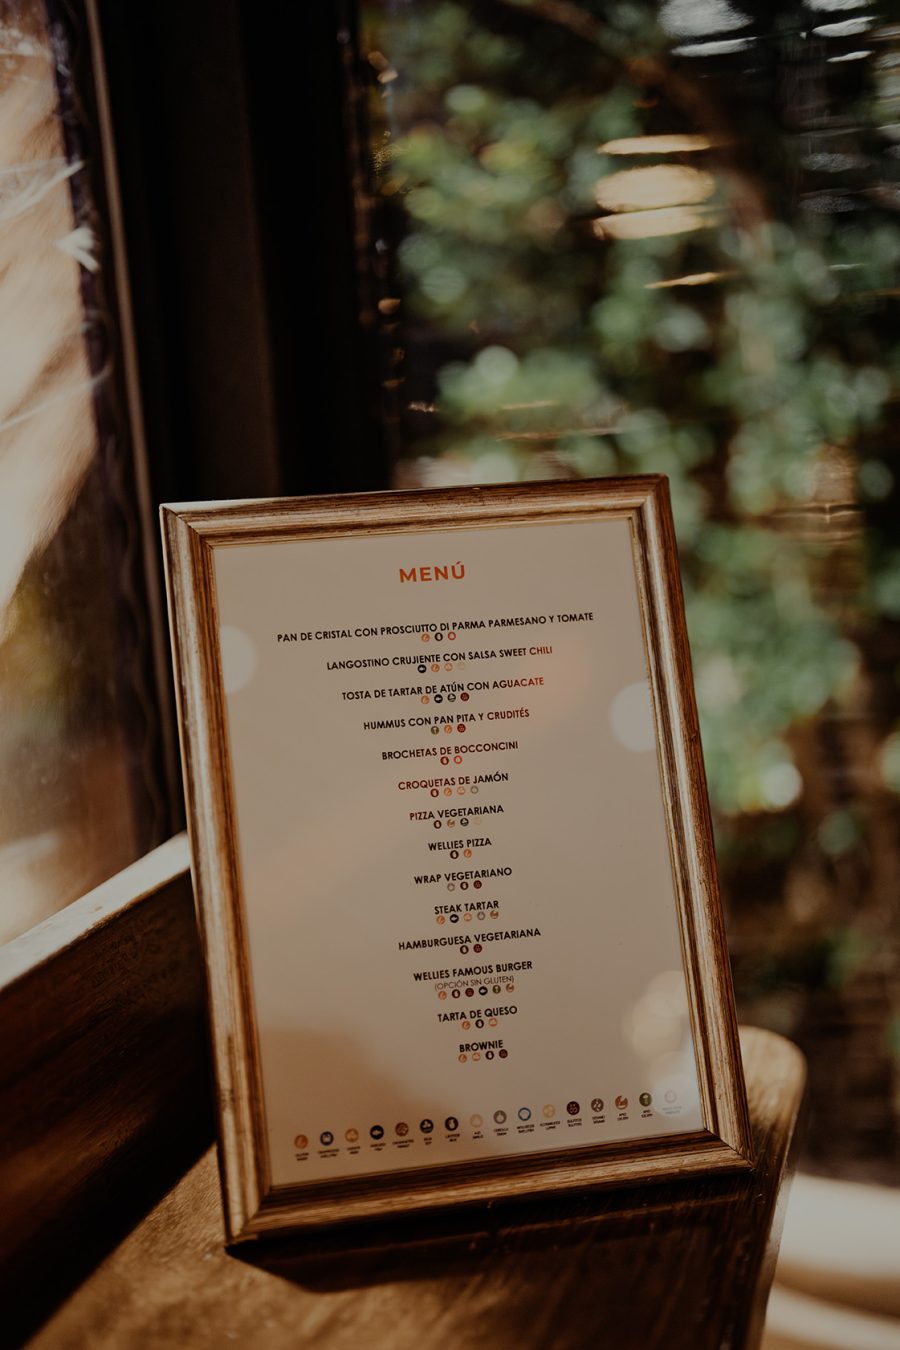 MENÚ
PAN DE CRISTAL CON PROSCIUTTO DI PARMA PARMESANO Y TOMATE
LANGOSTINO CRUJIENTE CON SALSA SWEET CHILI
TOSTA DE TARTAR DE ATÚN CON AGUACATE
HUMMUS CON PAN PITA Y CRUDITÉS
BROCHETAS DE BOCCONCINI
CROQUETAS DE JAMÓN
PIZZA VEGETARIANA
WELLIES PIZZA
WRAP VEGETARIANO
STEAK TARTAR
HAMBURGUESA VEGETARIANA
WELLIES FAMOUS BURGER
(OPCIÓN SIN GLUTEN)
TARTA DE QUESO
BROWNIE